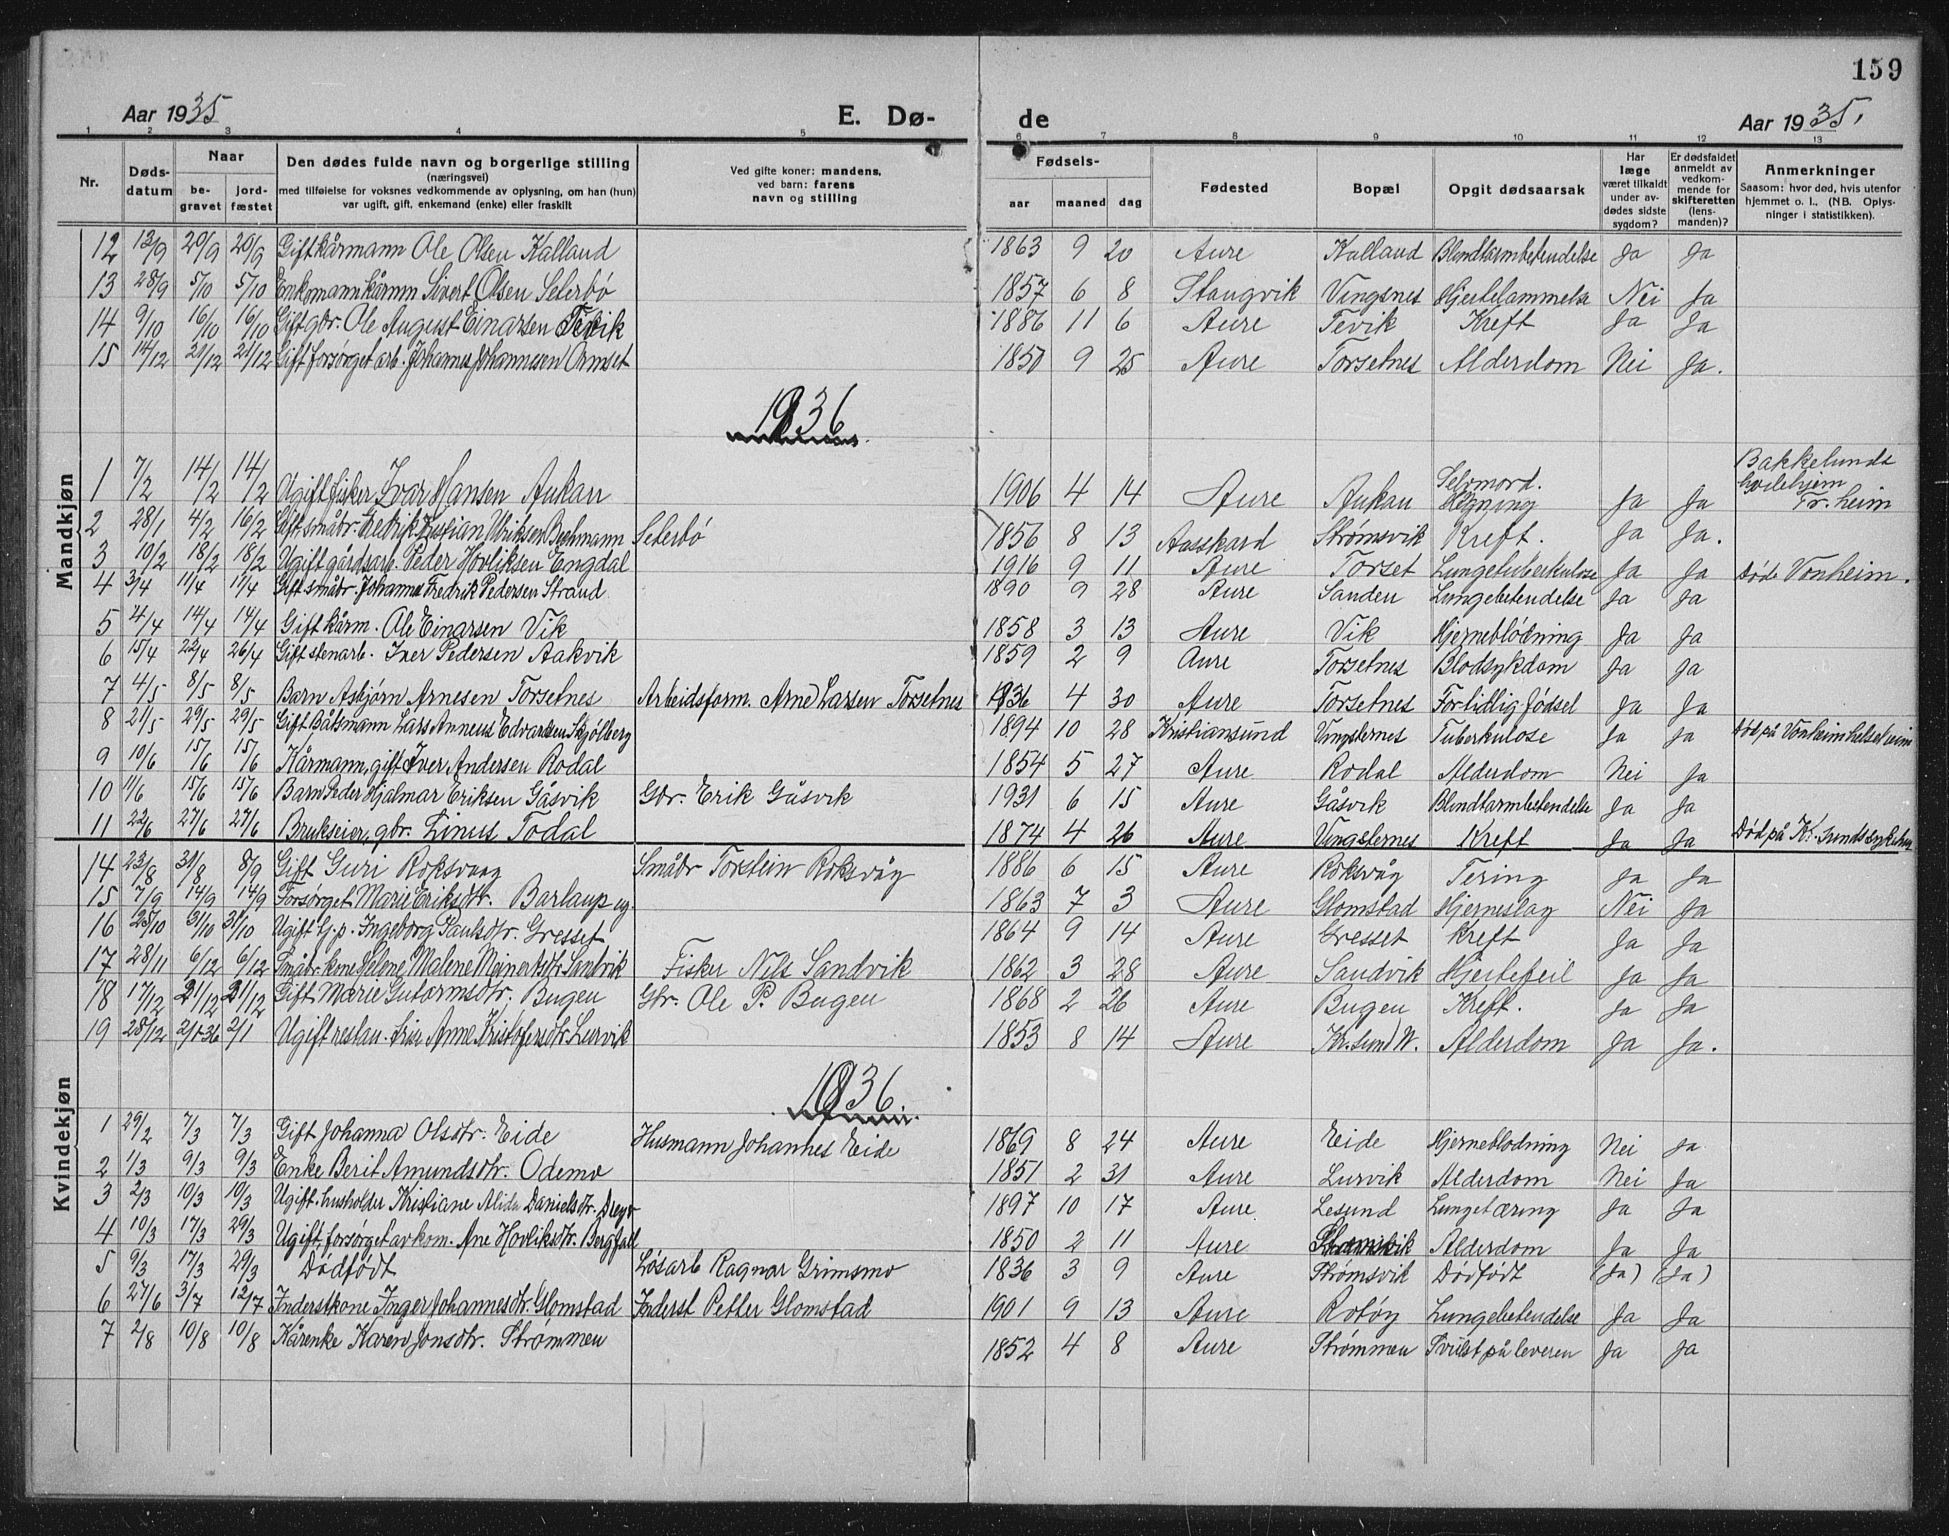 159
Aar 1935 E. Dø- de Aar 1935.
1 2 3 4 5 6 7 8 9 10 11 12 13
Nr. Døds-datum Naar be-gravet jord-fæstet Den dødes fulde navn og borgerlige stilling (næringsvei) med tilføielse for voksnes vedkommende av oplysning, om han (hun) var ugift, gift, enkemand (enke) eller fraskilt Ved gifte koner: mandens, ved barn: farens navn og stilling Fødsels- aar maaned dag Fødested Bopæl Opgit dødsaarsak Har læge været tilkaldt under av-dødes sidste sygdom? Er dødsfaldet anmeldt av vedkom-mende for skifteretten (lens-manden)? Anmerkninger Saasom: hvor død, hvis utenfor hjemmet o. l., (NB. Oplys-ninger i statistikken).
Mandkjøn
12 13/9 20/9 20/9 Gift kårmann Ole Olsen Kalland 1863 9 20 Aure Kalland Blindtarmbetendelse Ja Ja
13 28/9 5/10 5/10 Enkemann kårmn Sivert Olsen Seterbø 1857 6 8 Stangvik Vingsnes Hjertelammelse Nei Ja
14 9/10 16/10 16/10 Gift gbr. Ole August Einarsen Tevik 1886 11 6 Aure Tevik Kreft Ja Ja
15 14/12 21/12 21/12 Gift forsørget arb. Johannes Johannesen Ormset 1850 9 25 Aure Torsetnes Alderdom Nei Ja.
1936
1 7/2 14/2 14/2 Ugift fisker Ivar Hansen Aukan 1906 4 14 Aure Aukan Selvmord. Hegning Ja Ja Bakkelunds Tr. heim
2 28/1 4/2 16/2 Gift småbr Fredrik Kristian Ulriksen Bachmann Seterbø 1856 8 13 Aasskard Strømsvik Kreft. Ja Ja.
3 10/2 18/2 18/2 Ugift gårdsarb. Peder Hovliksen Engdal 1916 9 11 Aure Torset Lungetuberkulose Ja Ja Døde Vonheim.
4 3/4 11/4 11/4 Gift småbr. Johannes Fredrik Pedersen Strand 1890 9 28 Aure Sanden Lungebetendelse Ja Ja
5 4/4 14/4 14/4 Gift kårm. Ole Einarsen Vik 1858 3 13 Aure Vik Hjerneblødning Ja Ja
6 15/4 22/4 26/4 Gift stenarb. Iver Pedersen Aakvik 1859 2 9 Aure Torsetnes Blodsykdom Ja Ja
7 4/5 8/5 8/5 Barn Asbjørn Arnesen Torsetnes Arbeidsform. Arne Larsen Torsetnes 1936 4 30 Aure Torsetnes For tidlig fødsel Ja Ja
8 21/5 29/5 29/5 Gift Båtsmann Lars Anneus Edvardsen Skjølberg 1894 10 28 Kristiansund Vingsternes Tuberkulose Ja Ja død på Vonheim helseheim
9 10/6 15/6 15/6 Kårmann, gift Iver Andersen Rodal 1854 5 27 Aure Rodal Alderdom Nei Ja
10 11/6 15/6 15/6 Barn Peder Hjalmar Eriksen Gåsvik Gbr. Erik Gåsvik 1931 6 15 Aure Gåsvik Blindtarmbetendelse Ja Ja
11 22/6 27/6 27/6 Brukseier, gbr. Linus Todal 1874 4 26 Aure Vingsternes Kreft Ja Ja Død på K.-sunds sykehus
Kvindekjøn
14 23/8 31/8 8/9 Gift Guri Roksvaag Småbr Torstein Roksvåg 1886 6 15 Aure Roksvåg Tering Ja Ja
15 7/9 14/9 14/9 Forsørget Marie Eriksdtr. Barlaup ug. 1863 7 3 Aure Glomstad Hjerneslag Nei Ja
16 25/10 31/10 31/10 Ugift G.p. Ingeborg Paulsdtr. Gresset 1864 9 14 Aure Gresset Kreft Ja Ja
17 28/11 6/12 6/12 Småbr. kone Helene Malene Meinertsdtr Sandvik Fisker Nils Sandvik 1862 3 28 Aure Sandvik Hjertefeil Ja Ja
18 17/12 21/12 21/12 Gift Marie Gutormsdtr. Bugen Gbr. Ole P. Bugen 1868 2 26 Aure Bugen Kreft. Ja Ja
19 28/12 2/1-36 2/1 Ugift restau. Anne Kristofersdtr. Lurvik 1853 8 14 Aure Kr. sund N. Alderdom Ja Ja.
1936
1 29/2 7/3 7/3 Gift Johanna Olsdtr. Eide Husmann Johannes Eide 1869 8 24 Aure Eide Hjerneblodning Nei Ja
2 1/3 9/3 9/3 Enke Berit Amundsdtr. Odemo 1851 2 31 Aure Lurvik Alderdom Nei Ja
3 2/3 10/3 10/3 Ugift. husholder Kristiane Alida Danielsdtr. Dreyer 1897 10 17 Aure Lesund Lungetæring Ja Ja
4 10/3 17/3 29/3 Ugift, forsørget av kom. Ane Hovliksdtr. Bergfall 1850 2 11 Aure Alderdom Ja Ja
5 9/3 17/3 29/3 Dødfødt Løsarb Ragnar Grimsmo 1836 3 9 Aure Strømsvik Dødfødt (Ja) (Ja)
6 27/6 3/7 12/7 Inderstkone Inger Johannesdtr. Glomstad Inderst Petter Glomstad 1901 9 13 Aure Rotøy Lungebetendelse Ja Ja
7 2/8 10/8 10/8 Kårenke Karen Jonsdtr. Strømmen 1852 4 8 Aure Strømmen Svulst på leveren Ja Ja